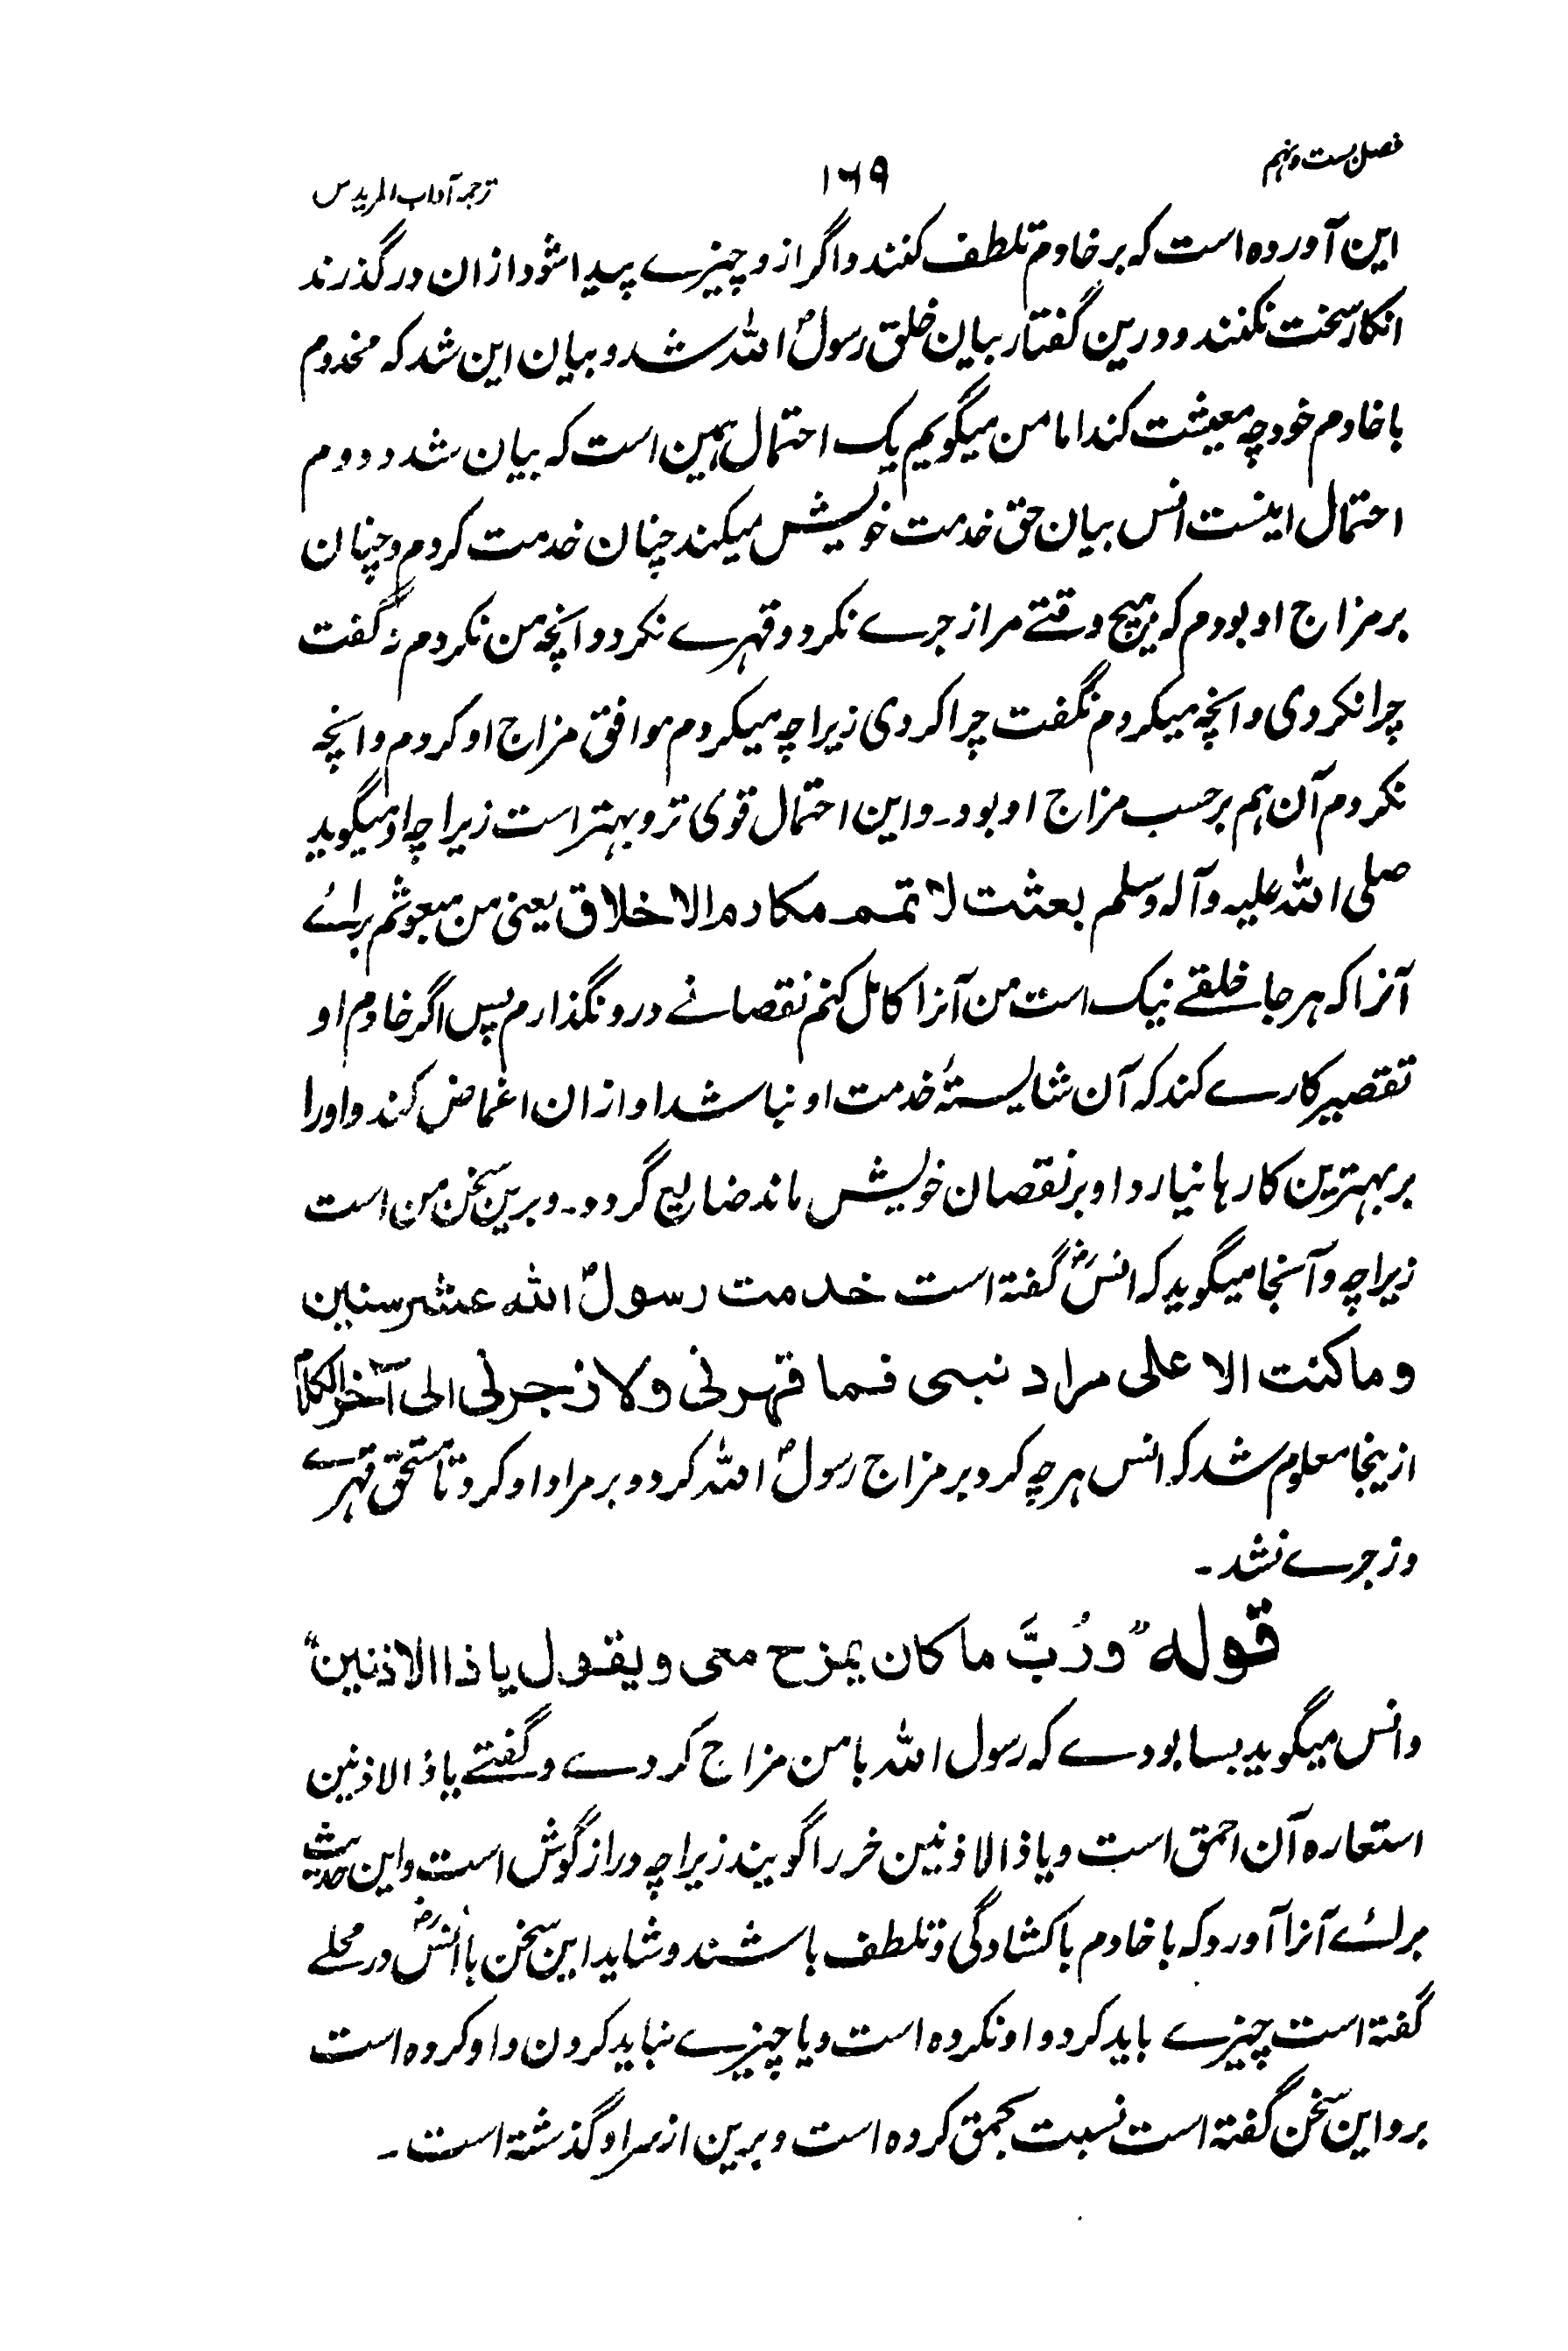 فصل بست ونہم
۱۶۹
ترجمہ آداب المریدین
این آورده است که بر خادم تلطف کنند واگر ازو چیزے پیدا شود ازان درگذرند
انکار سخت نکنند ودرین گفتار بیان خلق رسولؐ اللّٰہ شد وبیان این شد که مخدوم
با خادم خود چه معیشت کند اما من میگویم یک احتمال ہمین است که بیان شد ودوم
احتمال اینست انس بیان حق خدمت خویش میکند چنان خدمت کردم وچنان
بر مزاج او بودم که ہیچ وقتے مرا زجرے نکرد وقہرے نکرد وانچه من نکردم نه گفت
چرا نکردی وانچه میکردم نگفت چرا کردی زیراچه میکردم موافق مزاج او کردم وانچه
نکردم آن ہم برحسب مزاج او بود۔ واین احتمال قوی تر وبہتر است زیراچه او میگوید
صلی اللّٰہ علیہ وآلہ وسلم بعثت لاتمم مکارم الاخلاق یعنی من مبعوثم براے
آنرا که ہر جا خلقے نیک است من آنرا کامل کنم نقصانے درو نگذارم پس اگر خادم او
تقصیر کارے کند که آن شایستۂ خدمت او نباشد او ازان اغماض کند واورا
بر بہترین کارہا نیارد او بر نقصان خویش ماند ضایع گردد۔ وبرین سخن من است
زیراچه وآنجا میگوید که انسؓ گفته است خدمت رسولؐ اللّٰہ عشر سنین
وما کنت الا علی مراد نبیی فما قہرنی ولا زجرنی الی آخر الکلام
ازینجا معلوم شد که انس ہرچه کرد بر مزاج رسولؐ اللّٰہ کرد وبر مراد او کرد تا مستحق قہرے
وزجرے نشد۔
قولہ "ورُبَّ ما کان یمزح معی ویقول یا ذا الاذنین"
وانس میگوید بسا بودے که رسول اللّٰہ با من مزاح کردے وگفتے یا ذا الاذنین
استعاره آن احمق است ویا ذا الاذنین خر را گویند زیراچه دراز گوش است واین حدیث
براے آنرا آورد که با خادم با کشادگی وتلطف باشند وشاید این سخن با انسؓ در محلے
گفته است چیزے باید کرد واو نکرده است ویا چیزے نباید کردن واو کرده است
برو این سخن گفته است نسبت بحمق کرده است وبرین از سر او گذشته است۔